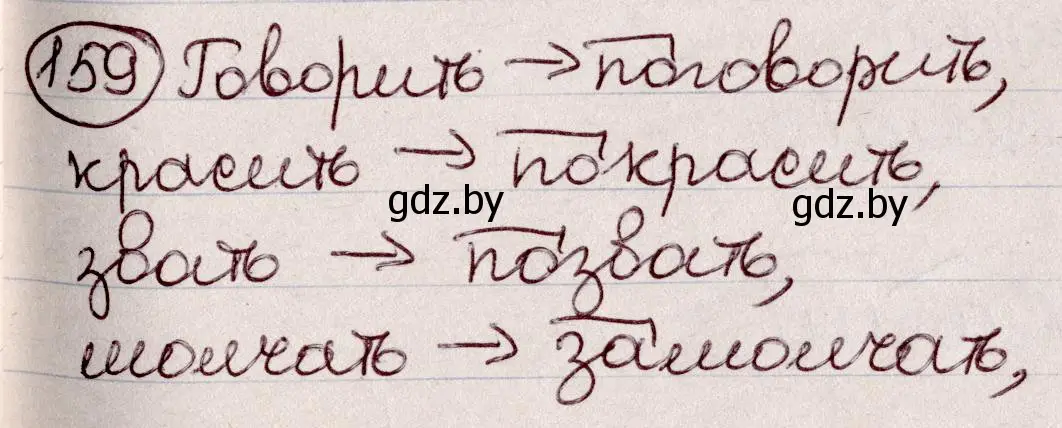 159 Говорить → поговорить,
красить → покрасить,
gdz.by gdz.by
звать → позвать,
молчать → замолчать,